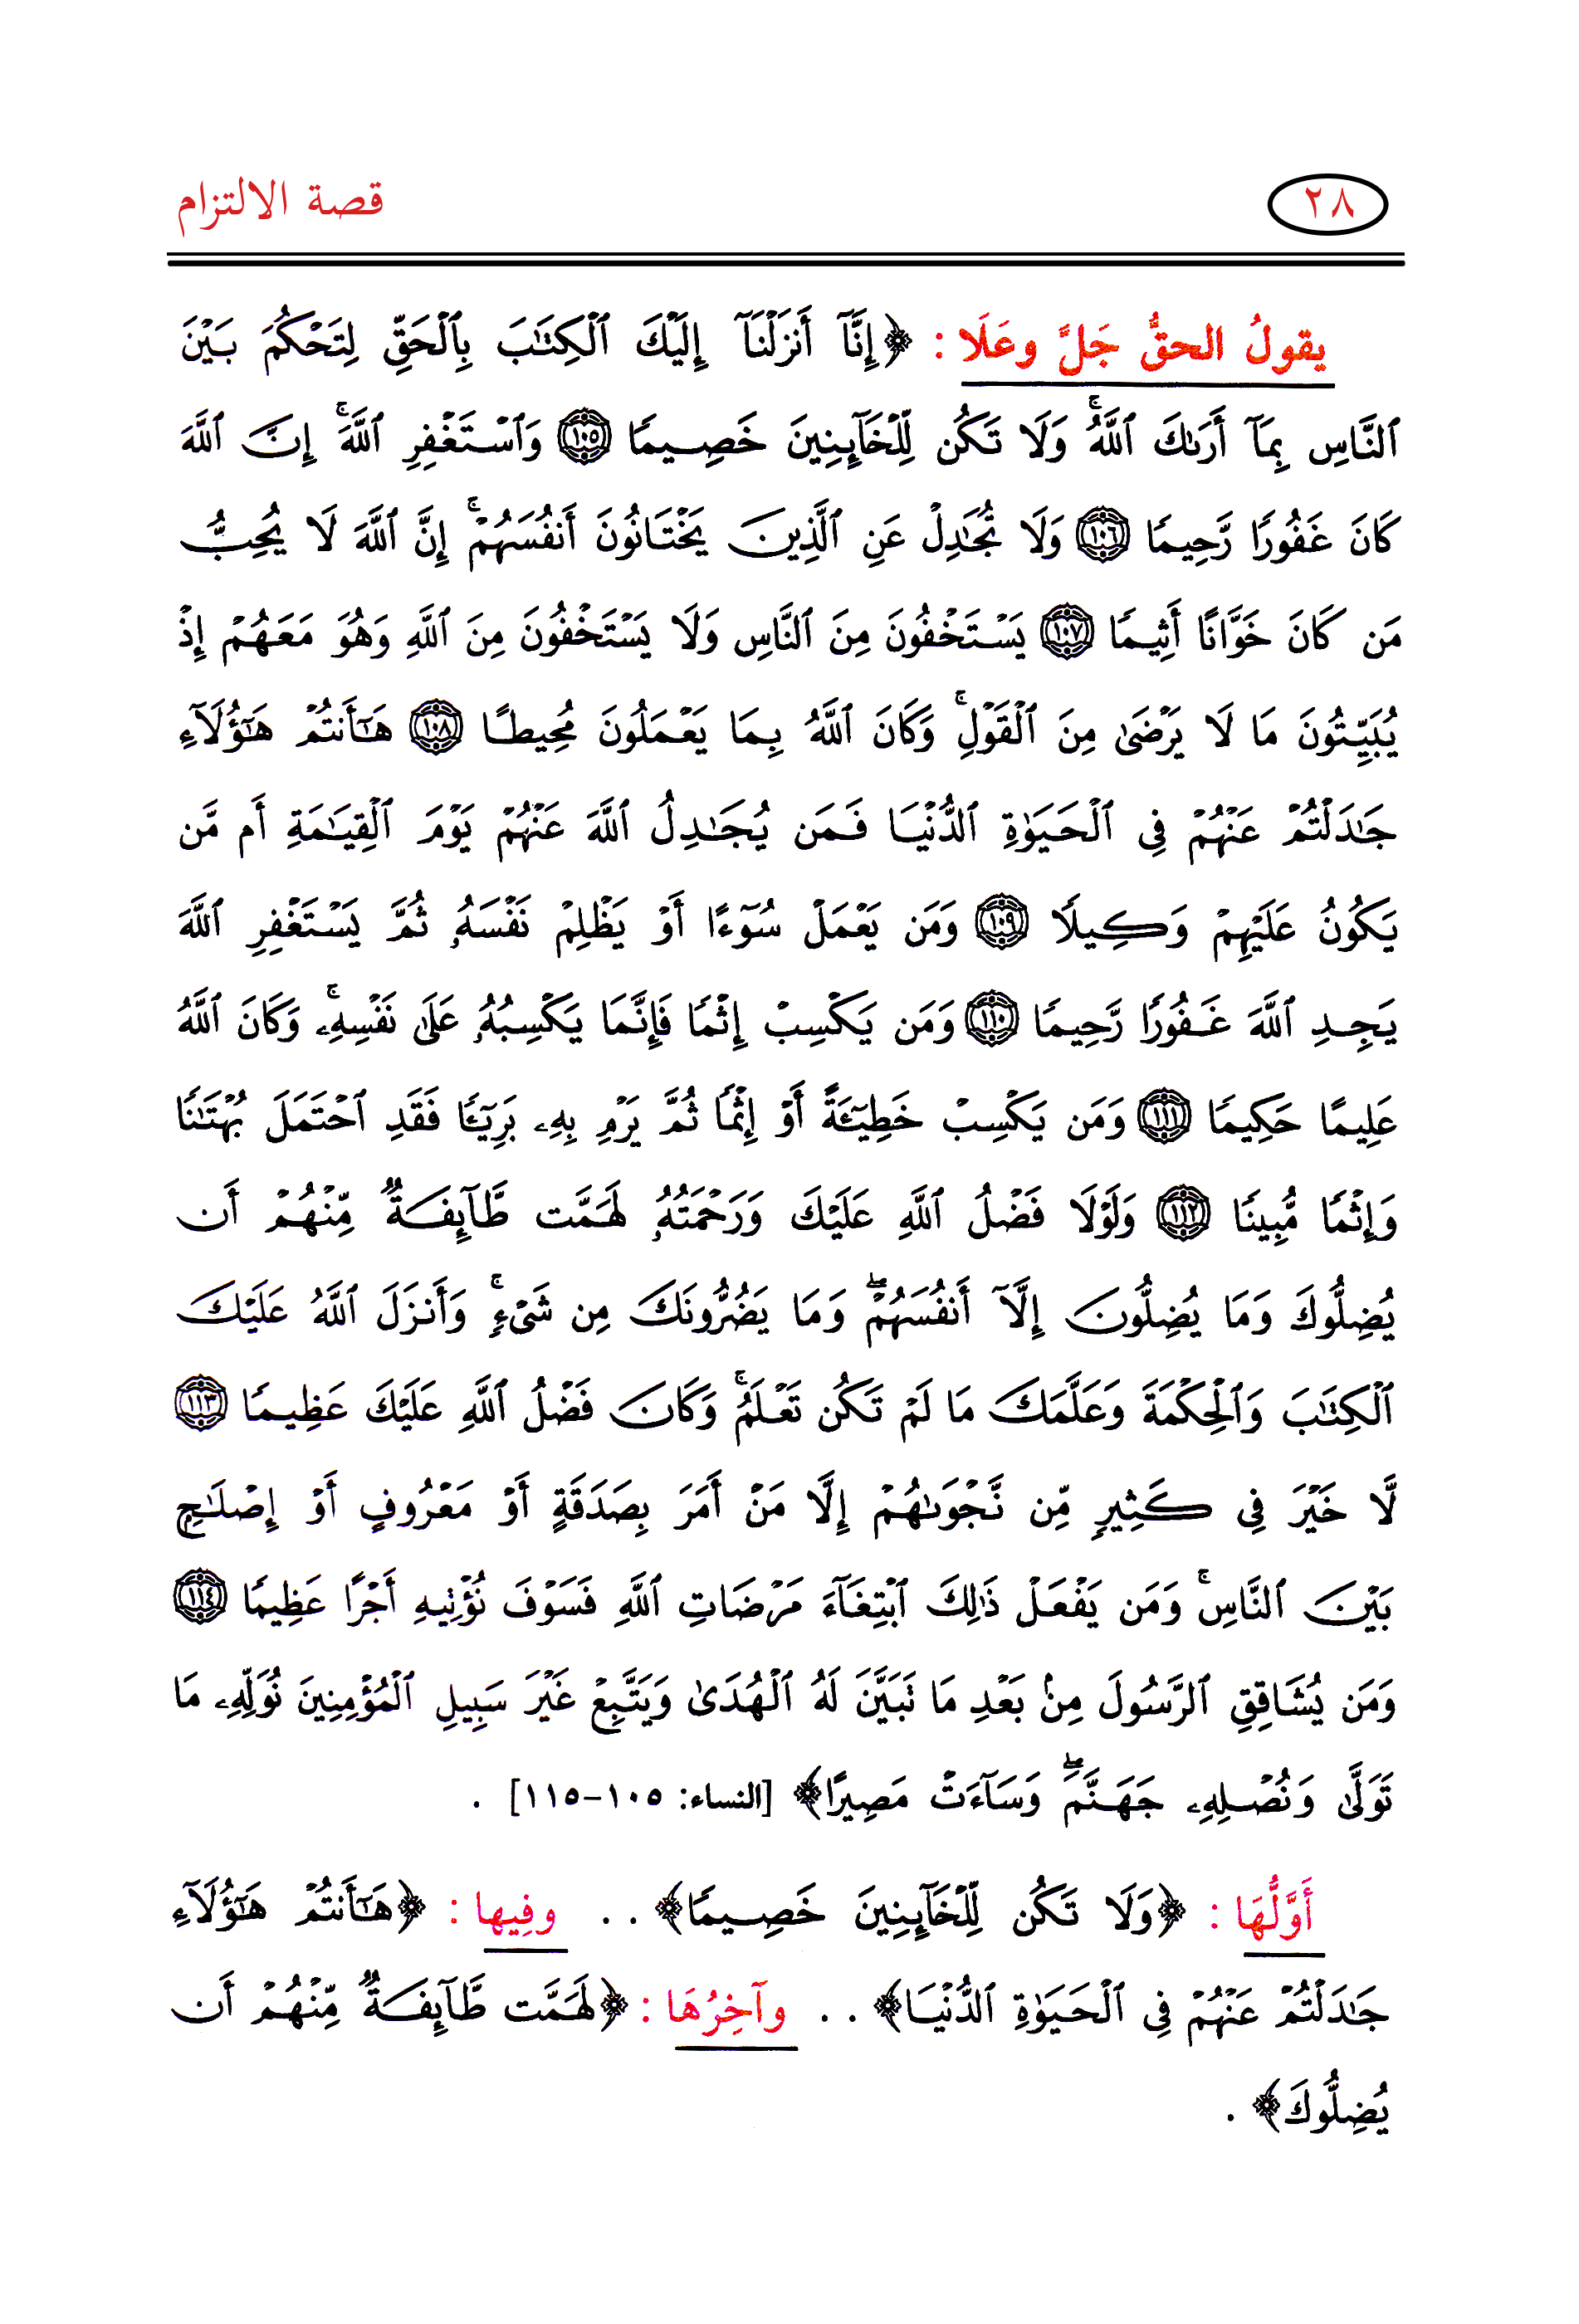 ٢٨
قصة الالتزام
يقولُ الحقُّ جَلَّ وعَلَا : ﴿إِنَّآ أَنزَلْنَآ إِلَيْكَ ٱلْكِتَٰبَ بِٱلْحَقِّ لِتَحْكُمَ بَيْنَ
ٱلنَّاسِ بِمَآ أَرَىٰكَ ٱللَّهُ ۚ وَلَا تَكُن لِّلْخَآئِنِينَ خَصِيمًا ١٠٥ وَٱسْتَغْفِرِ ٱللَّهَ ۖ إِنَّ ٱللَّهَ
كَانَ غَفُورًا رَّحِيمًا ١٠٦ وَلَا تُجَٰدِلْ عَنِ ٱلَّذِينَ يَخْتَانُونَ أَنفُسَهُمْ ۚ إِنَّ ٱللَّهَ لَا يُحِبُّ
مَن كَانَ خَوَّانًا أَثِيمًا ١٠٧ يَسْتَخْفُونَ مِنَ ٱلنَّاسِ وَلَا يَسْتَخْفُونَ مِنَ ٱللَّهِ وَهُوَ مَعَهُمْ إِذْ
يُبَيِّتُونَ مَا لَا يَرْضَىٰ مِنَ ٱلْقَوْلِ ۚ وَكَانَ ٱللَّهُ بِمَا يَعْمَلُونَ مُحِيطًا ١٠٨ هَٰٓأَنتُمْ هَٰٓؤُلَآءِ
جَٰدَلْتُمْ عَنْهُمْ فِى ٱلْحَيَوٰةِ ٱلدُّنْيَا فَمَن يُجَٰدِلُ ٱللَّهَ عَنْهُمْ يَوْمَ ٱلْقِيَٰمَةِ أَم مَّن
يَكُونُ عَلَيْهِمْ وَكِيلًا ١٠٩ وَمَن يَعْمَلْ سُوٓءًا أَوْ يَظْلِمْ نَفْسَهُۥ ثُمَّ يَسْتَغْفِرِ ٱللَّهَ
يَجِدِ ٱللَّهَ غَفُورًا رَّحِيمًا ١١٠ وَمَن يَكْسِبْ إِثْمًا فَإِنَّمَا يَكْسِبُهُۥ عَلَىٰ نَفْسِهِۦ ۚ وَكَانَ ٱللَّهُ
عَلِيمًا حَكِيمًا ١١١ وَمَن يَكْسِبْ خَطِيٓـَٔةً أَوْ إِثْمًا ثُمَّ يَرْمِ بِهِۦ بَرِيٓـًٔا فَقَدِ ٱحْتَمَلَ بُهْتَٰنًا
وَإِثْمًا مُّبِينًا ١١٢ وَلَوْلَا فَضْلُ ٱللَّهِ عَلَيْكَ وَرَحْمَتُهُۥ لَهَمَّت طَّآئِفَةٌ مِّنْهُمْ أَن
يُضِلُّوكَ وَمَا يُضِلُّونَ إِلَّآ أَنفُسَهُمْ ۖ وَمَا يَضُرُّونَكَ مِن شَىْءٍ ۚ وَأَنزَلَ ٱللَّهُ عَلَيْكَ
ٱلْكِتَٰبَ وَٱلْحِكْمَةَ وَعَلَّمَكَ مَا لَمْ تَكُن تَعْلَمُ ۚ وَكَانَ فَضْلُ ٱللَّهِ عَلَيْكَ عَظِيمًا ١١٣
لَّا خَيْرَ فِى كَثِيرٍ مِّن نَّجْوَىٰهُمْ إِلَّا مَنْ أَمَرَ بِصَدَقَةٍ أَوْ مَعْرُوفٍ أَوْ إِصْلَٰحٍ
بَيْنَ ٱلنَّاسِ ۚ وَمَن يَفْعَلْ ذَٰلِكَ ٱبْتِغَآءَ مَرْضَاتِ ٱللَّهِ فَسَوْفَ نُؤْتِيهِ أَجْرًا عَظِيمًا ١١٤
وَمَن يُشَاقِقِ ٱلرَّسُولَ مِنۢ بَعْدِ مَا تَبَيَّنَ لَهُ ٱلْهُدَىٰ وَيَتَّبِعْ غَيْرَ سَبِيلِ ٱلْمُؤْمِنِينَ نُوَلِّهِۦ مَا
تَوَلَّىٰ وَنُصْلِهِۦ جَهَنَّمَ ۖ وَسَآءَتْ مَصِيرًا﴾ [النساء: ١٠٥-١١٥] .
أَوَّلُهَا : ﴿وَلَا تَكُن لِّلْخَآئِنِينَ خَصِيمًا﴾ . . وفِيها : ﴿هَٰٓأَنتُمْ هَٰٓؤُلَآءِ
جَٰدَلْتُمْ عَنْهُمْ فِى ٱلْحَيَوٰةِ ٱلدُّنْيَا﴾ . . وآخِرُهَا : ﴿لَهَمَّت طَّآئِفَةٌ مِّنْهُمْ أَن
يُضِلُّوكَ﴾ .